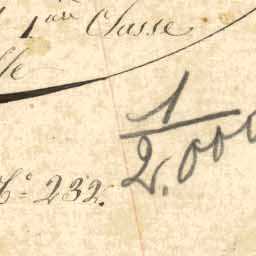 1ère Classe
lle
1
2.000
N° 232.